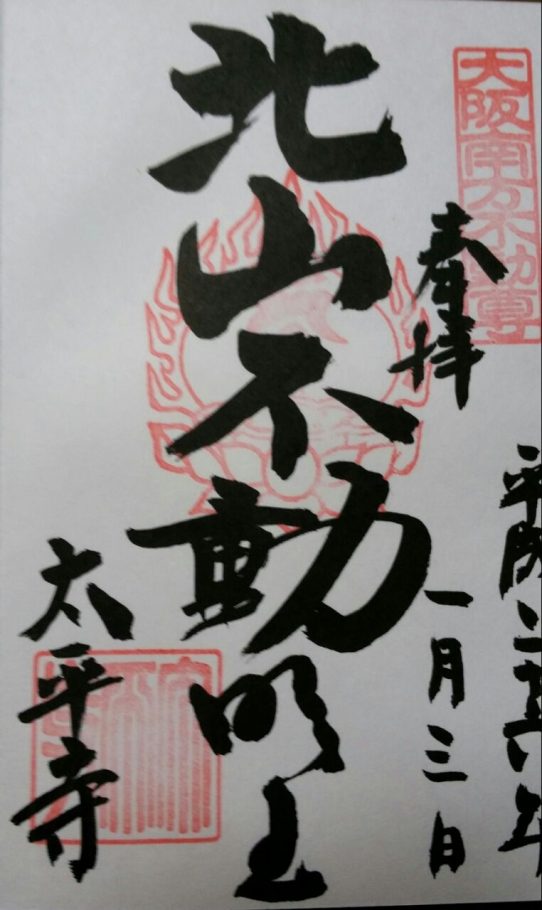 大阪南不動尊
奉拝
平成二十六年
一月三日
北山不動明王
太平寺